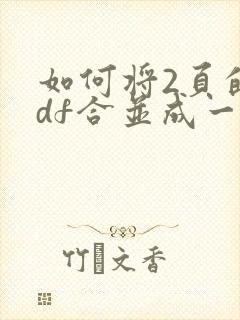 如何将2页的
df合并成一
竹�文香